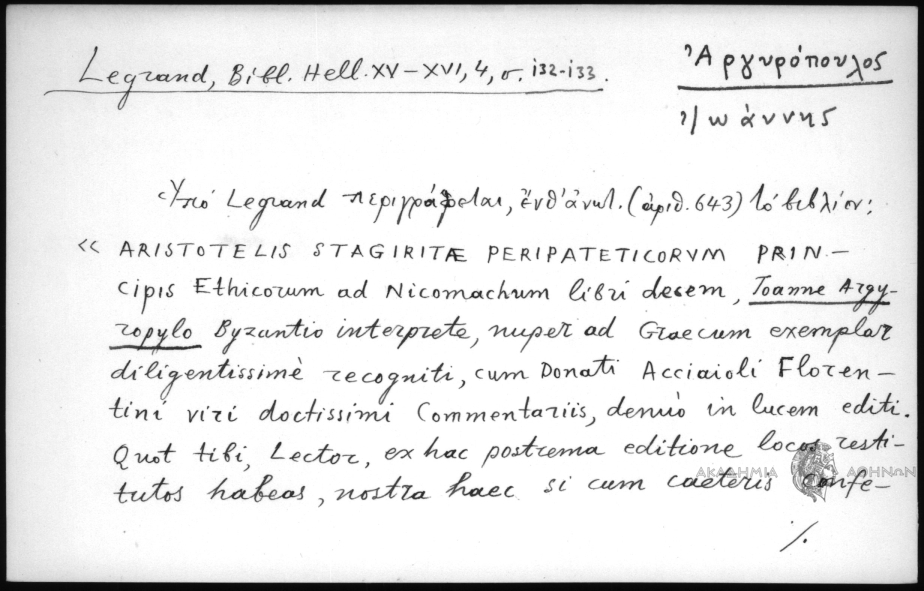 Legrand, Bibl. Hell. XV–XVI, 4, σ. 132-133.
Ἀργυρόπουλος
Ἰωάννης
Ὑπό Legrand περιγράφεται, ἔνθ' ἀνωτ. (ἀριθ. 643) τό βιβλίον:
« ARISTOTELIS STAGIRITÆ PERIPATETICORVM PRIN–
cipis Ethicorum ad Nicomachum libri decem, Joanne Argy-
ropylo Byzantio interprete, nuper ad Graecum exemplar
diligentissimè recogniti, cum Donati Acciaioli Floren–
tini viri doctissimi Commentariis, denuò in lucem editi.
Quot tibi, Lector, ex hac postrema editione locos resti–
tutos habeas, nostra haec si cum caeteris confe–
ΑΚΑΔΗΜΙΑ ΑΘΗΝΩΝ
./.